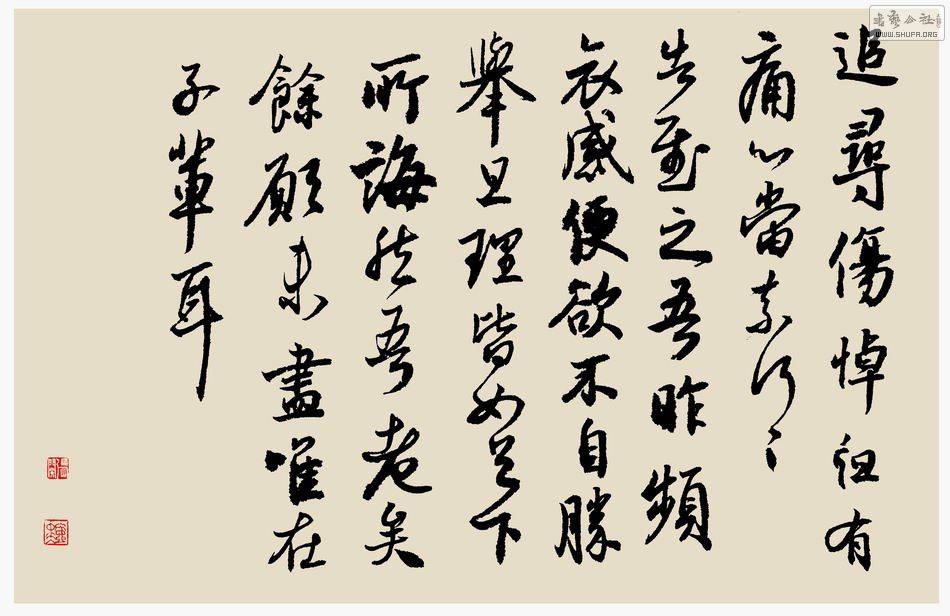 追尋傷悼但有
痛心當奈何〻
告慰之吾昨頻
哀感便欲不自勝
舉旦理皆如足下
所誨然吾老矣
餘願未盡唯在
子輩耳
書藝公社
WWW.SHUFA.ORG